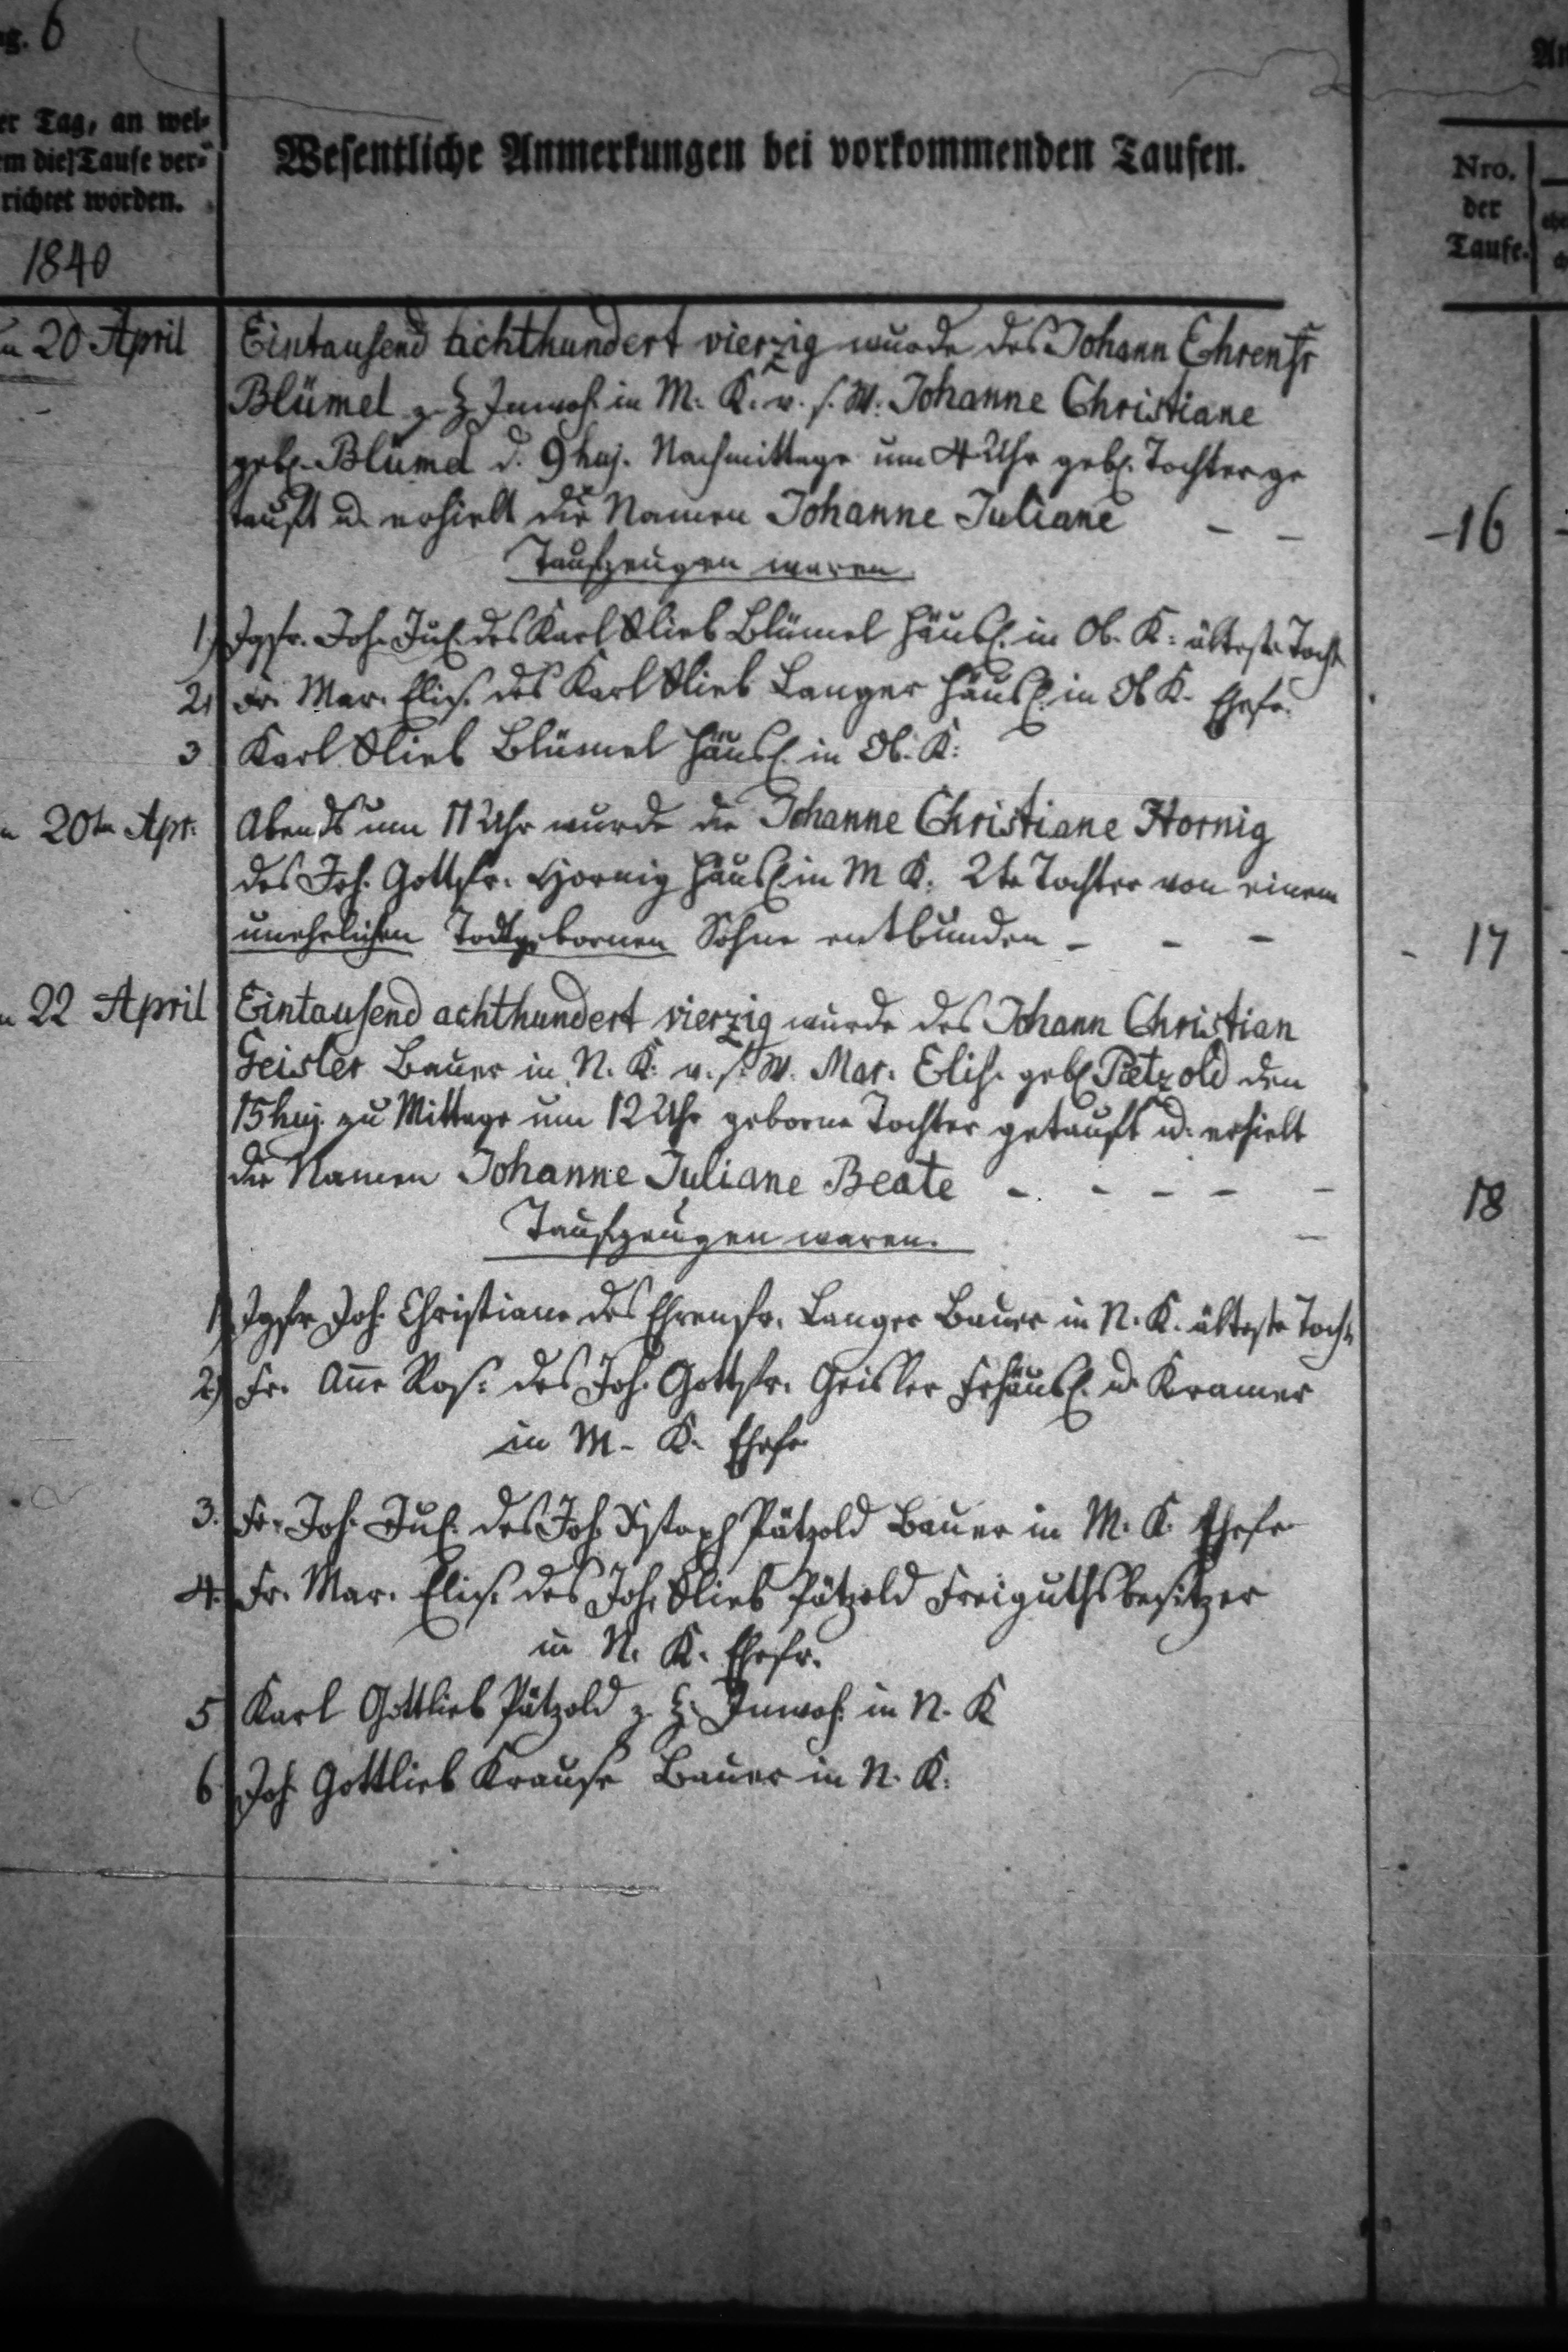 g. 6
er Tag, an wel-
em die Taufe ver-
richtet worden.
1840
Wesentliche Anmerkungen bei vorkommenden Taufen.
Nro.
der
Taufe.
n 20 April Eintausend achthundert vierzig wurde des Johann Ehrenfr
Blümel z. Z. Inwoh. in M. K. v. s. W. Johanne Christiane
geb. Blümel d. 9 huj. Nachmittags um 4 Uhr geb. Tochter ge
tauft u. erhielt die Namen Johanne Juliane – –
-16
Taufzeugen waren
1.) Jgfr. Joh. Jul. des Karl Glieb Blümel Häusl. in Ob. K. älteste Tocht
2) Fr. Mar. Elis. des Karl Glieb Langer Häusl. in Ob K. Ehefr.
3 Karl Glieb Blümel Häusl. in Ob. K.
n 20tn Apr. Abends um 11 Uhr wurde die Johanne Christiane Hornig
des Joh. Gottfr. Hornig Häusl. in M K. 2te Tochter von einem
unehelichen Todtgebornen Sohne entbunden – – –
- 17
n 22 April Eintausend achthundert vierzig wurde des Johann Christian
Geisler Bauer in N. K. v. s. W. Mar. Elis. geb. Pätzold den
15 huj. zu Mittage um 12 Uhr geborne Tochter getauft u. erhielt
die Namen Johanne Juliane Beate – – – – –
18
Taufzeugen waren.
1) Jgfr Joh. Christiane des Ehrenfr. Langer Bauer in N. K. älteste Tocht
2) Fr. Anne Ros. des Joh. Gottfr. Geisler Frhäusl. u. Kramer
in M. K. Ehefr
3. Fr. Joh. Jul. des Joh Xstoph Pätzold Bauer in M. K. Ehefr
4. Fr. Mar. Elis. des Joh. Glieb Pätzold Freiguthsbesitzer
in N. K. Ehefr.
5 Karl Gottlieb Pätzold z. Z. Inwoh. in N. K
6 Joh. Gottlieb Krause Bauer in N. K.